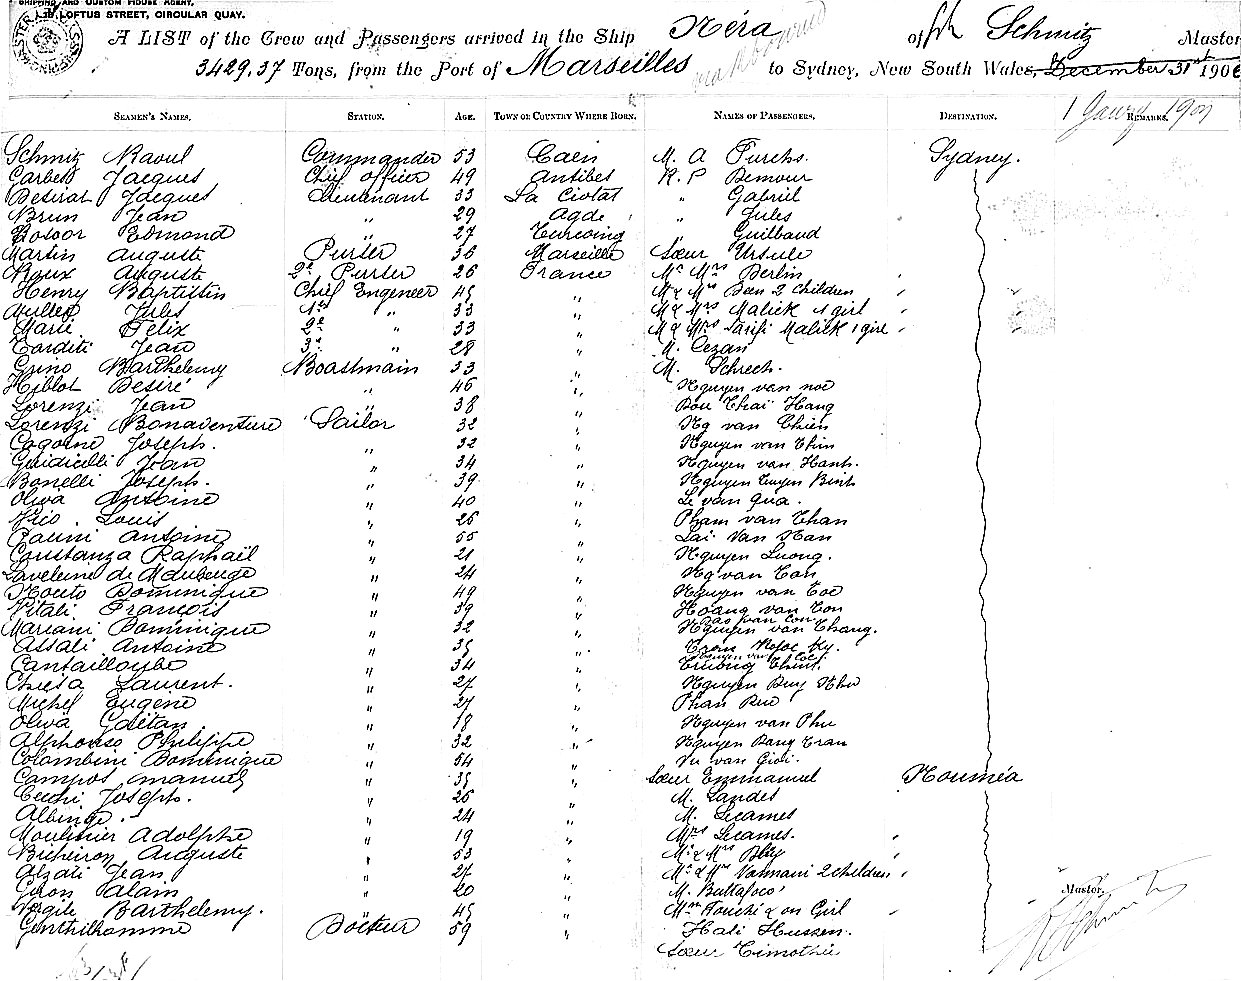 SHIPPING AND CUSTOM HOUSE AGENT,
LOFTUS STREET, CIRCULAR QUAY.
A LIST of the Crew and Passengers arrived in the Ship Néra of Schmitz Master
3429.37 Tons, from the Port of Marseilles to Sydney, New South Wales, December 31st 1906
1 Jany 1907
SEAMEN'S NAMES. STATION. AGE. TOWN OR COUNTRY WHERE BORN. NAMES OF PASSENGERS. DESTINATION. REMARKS.
Schmitz Raoul Commander 53 Caen M. A Furchs. Sydney.
Garbes Jacques Chief Officer 49 Antibes R. P Bemour
Jacques Lieutenant 33 La Ciotat " Gabriel
Brun Jean " 29 Agde " Jules
Edmond " 27 Turcoing " Guilbaud
Martin Auguste Purser 36 Marseille Sœur Ursule
Auguste 2e Purser 26 France Mr Mrs Berlin
Henry Baptistin Chief Engeneer 45 " M & Mrs Been 2 children
Jules 1st " 33 " M & Mrs Malick 1 girl
Marie Felix 2e " 33 " M & Mrs Malick 1 girl
Tarditi Jean 3e " 28 " M. Cezan
Barthelemy Boastmain 33 " M. Schrech.
Hiblot Desiré " 46 " Nguyen van noe
Lorenzi Jean " 38 " Thai Hang
Lorenzi Bonaventure Sailor 32 " Ng van Chien
Joseph. " 32 " Nguyen van Chin
Guidicelli Jean " 34 " Nguyen van Hanh.
Bonelli Joseph. " 39 " Nguyen Tuyen Binh
Oliva Antoine " 40 " Le van Qua.
Louis " 26 " Pham van Chan
Antoine " 55 " Lai Van Han
Constanza Raphaël " 21 " Nguyen Luong.
de Maubeuge " 24 " Ng van Can
Dominique " 49 " Nguyen van Coe
Vitali François " 39 " Hoang van Con
Mariani Dominique " 32 " Nguyen van Chang.
Assali Antoine " 35 " Ky.
Cantailloube " 34 " Truong Chinh.
Chiesa Laurent. " 27 " Nguyen Duy Nhu
Michel Eugène " 27 " Phan Due
Oliva Gaëtan " 18 " Nguyen van Phu
Alphonso Philippe " 32 " Nguyen Dang Tran
Colombini Dominique " 54 " Vu van Gioi.
Campos Manuel " 35 " Sœur Emmanuel Nouméa
Cecchi Joseph. " 26 " M. Landes
Albinge. " 24 " M. Lecames
Moulinier Adolphe " 19 " Mrs Lecames.
Auguste " 53 " Mr & Mrs
Alzati Jean " 27 " Mr & Mrs Vannani 2 children
Alain " 20 " M. Buttafoco Master.
Barthelemy. " 45 " Mm Fouché & on Girl
Genthilhomme Docteur 59 " Hali Hussen.
Sœur Timothée